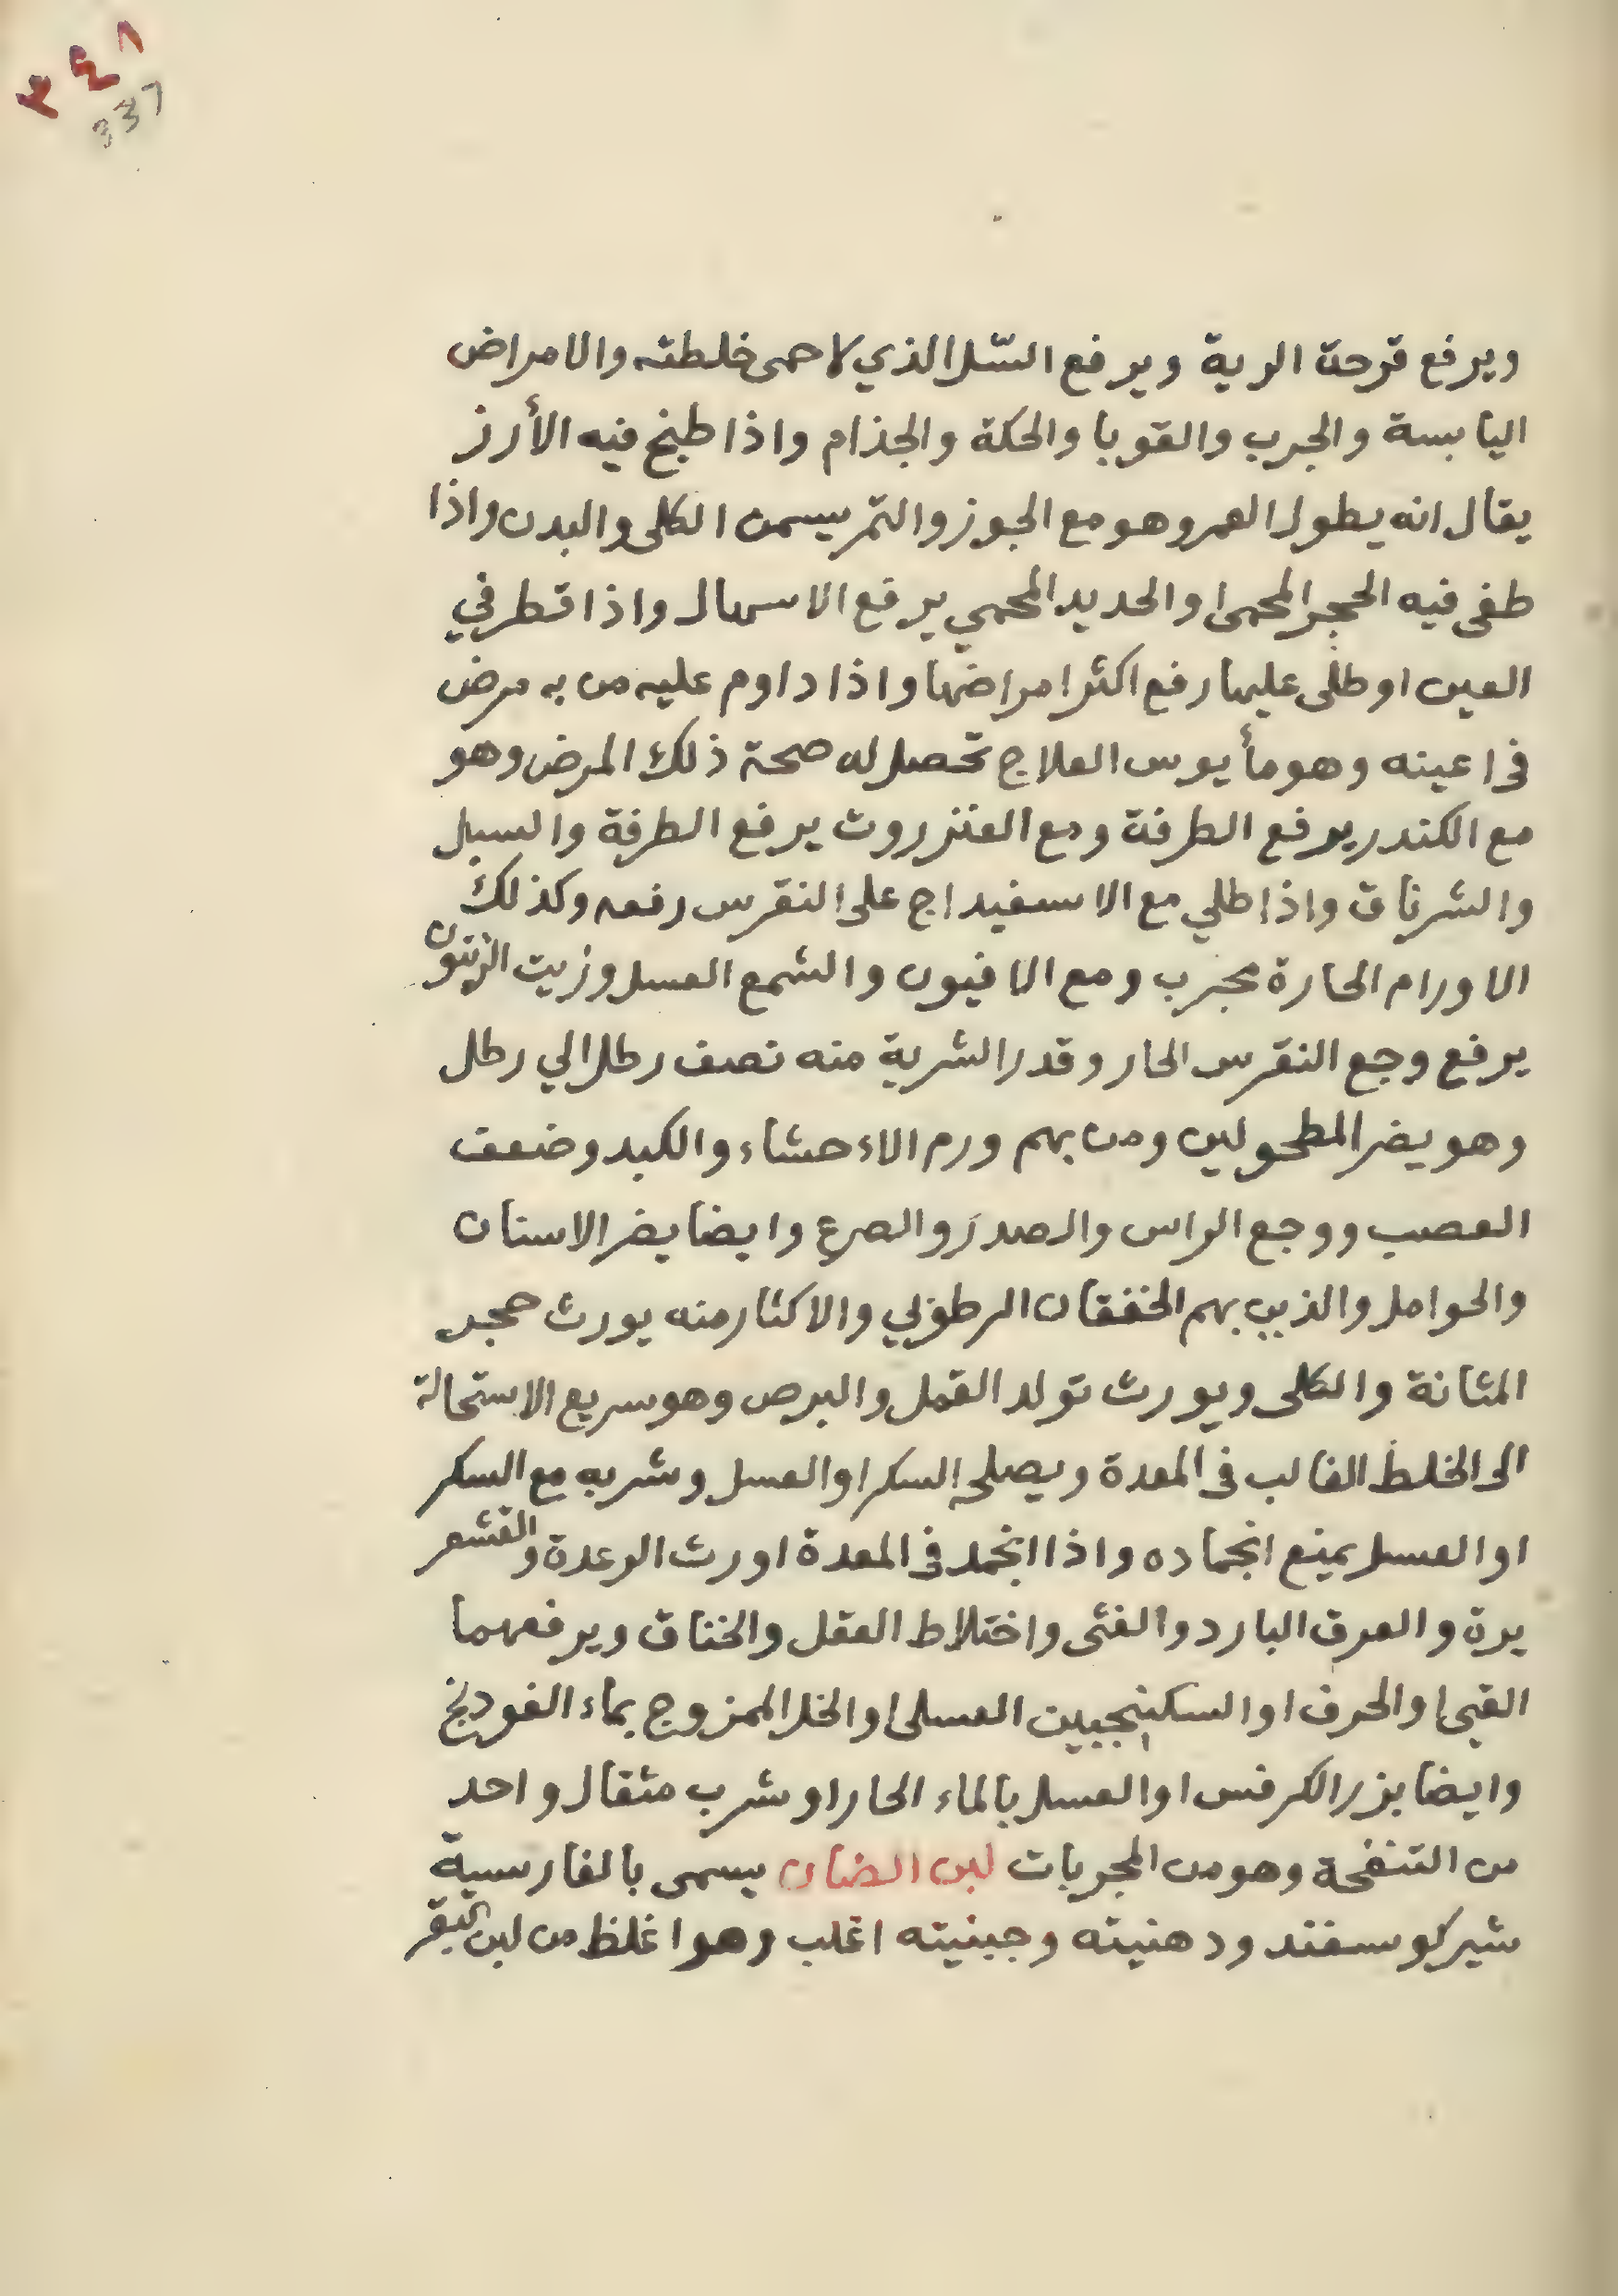 ٣٤٨
337
ويرفع قرحة الرية ويرفع السّل الذي لاحمى خلطته والامراض
اليابسة والجرب والقوبا والحكة والجذام واذا طبخ فيه الأرز
يقال انه يطول العمر وهو مع الجوز والتمر يسمن الكلى والبدن واذا
طفى فيه الحجر المحمى او الحديد المحمي يرفع الاسهال واذا قطر في
العين او طلى عليها رفع اكثر امراضها واذا داوم عليه من به مرض
فى اعينه وهو مأيوس العلاج تحصل له صحة ذلك المرض وهو
مع الكندر يرفع الطرفة ومع العنزروت يرفع الطرفة والسبل
والشرناق واذا طلي مع الاسفيداج على النقرس رفعه وكذلك
الاورام الحارة مجرب ومع الافيون والشمع العسل وزيت الزيتون
يرفع وجع النقرس الحار وقدر الشربة منه نصف رطل الي رطل
وهو يضر المطحولين ومن بهم ورم الاءحشاء والكبد وضعف
العصب ووجع الراس والصدر والصرع وايضا يضر الاسنان
والحوامل والذين بهم الخفقان الرطوبي والاكثار منه يورث حجر
المثانة والكلى ويورث تولد القمل والبرص وهو سريع الاستحالة
الى الخلط الغالب فى المعدة ويصلحه السكر او العسل وشربه مع السكر
او العسل يمنع انجماده واذا انجمد فى المعدة اورث الرعدة والقشعر
يرة والعرق البارد والغشى واختلاط العقل والخناق ويرفعهما
القى او الحرف او السكنجبين العسلى او الخل الممزوج بماء الفودنج
وايضا بزر الكرفس او العسل بالماء الحار او شرب مثقال واحد
من التنفحة وهو من المجربات لبن الضان يسمى بالفارسية
شير كوسفند ودهنيته وجبنيته اغلب وهو اغلظ من لبن البقر